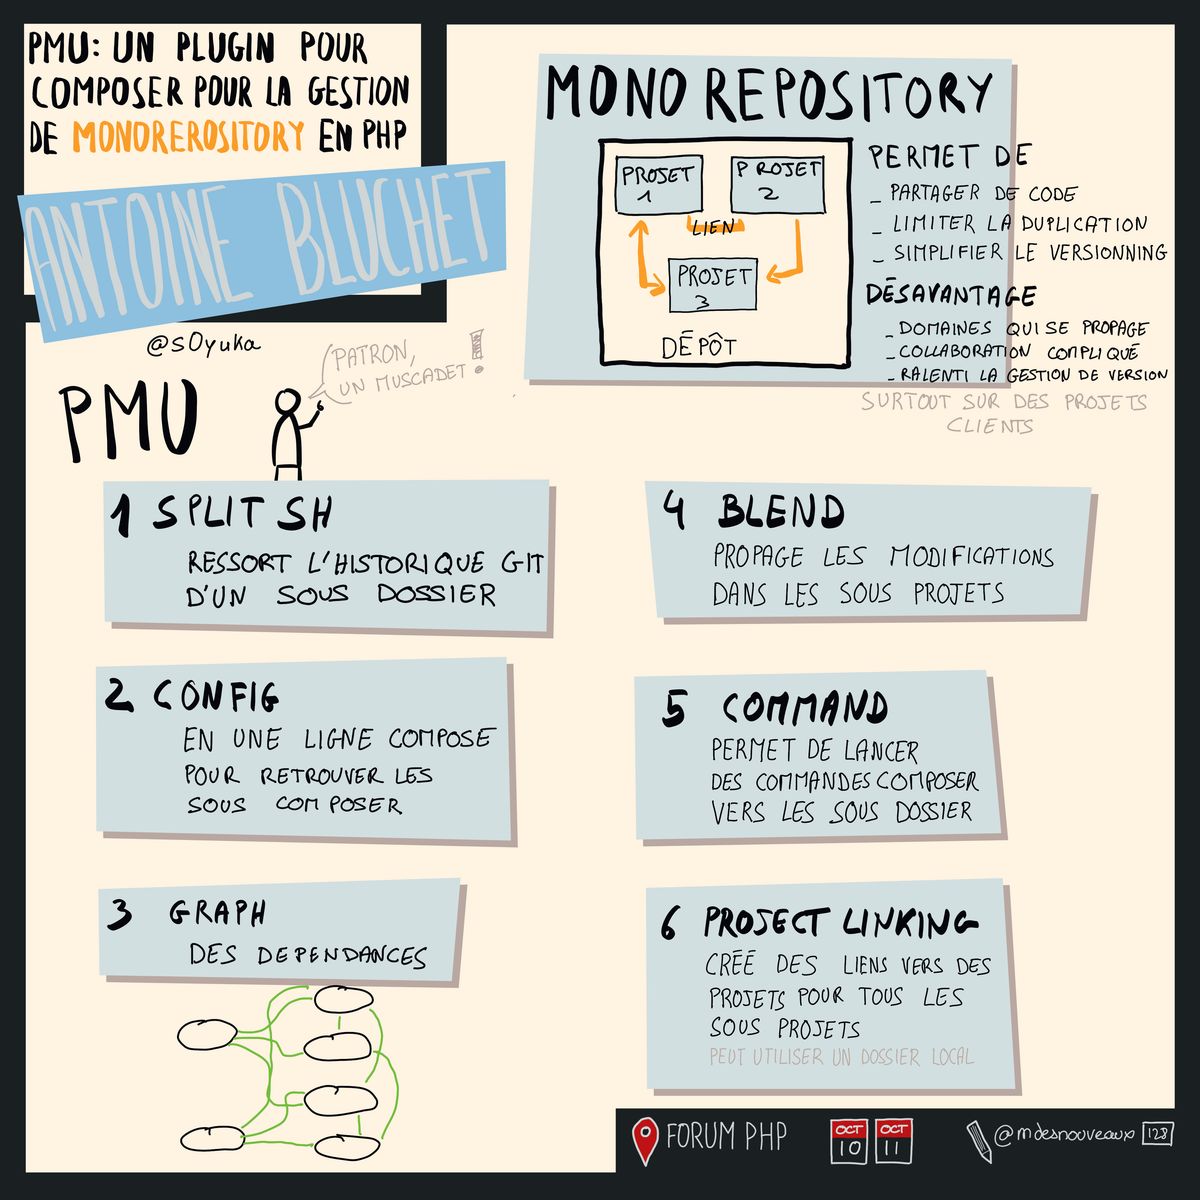 PMU: UN PLUGIN POUR
COMPOSER POUR LA GESTION
DE MONOREROSITORY EN PHP
ANTOINE BLUCHET
@s0yuka
MONO REPOSITORY
PROJET
1
PROJET
2
LIEN
PROJET
3
DÉPÔT
PERMET DE
_ PARTAGER DE CODE
_ LIMITER LA DUPLICATION
_ SIMPLIFIER LE VERSIONNING
DÉSAVANTAGE
_ DOMAINES QUI SE PROPAGE
_ COLLABORATION COMPLIQUÉ
_ RALENTI LA GESTION DE VERSION
SURTOUT SUR DES PROJETS
CLIENTS
PMU
PATRON,
UN MUSCADET !
1 SPLIT SH
RESSORT L'HISTORIQUE GIT
D'UN SOUS DOSSIER
2 CONFIG
EN UNE LIGNE COMPOSE
POUR RETROUVER LES
SOUS COMPOSER
3 GRAPH
DES DEPENDANCES
4 BLEND
PROPAGE LES MODIFICATIONS
DANS LES SOUS PROJETS
5 COMMAND
PERMET DE LANCER
DES COMMANDES COMPOSER
VERS LES SOUS DOSSIER
6 PROJECT LINKING
CRÉÉ DES LIENS VERS DES
PROJETS POUR TOUS LES
SOUS PROJETS
PEUT UTILISER UN DOSSIER LOCAL
FORUM PHP
OCT
10
OCT
11
@mdesnouveaux
128